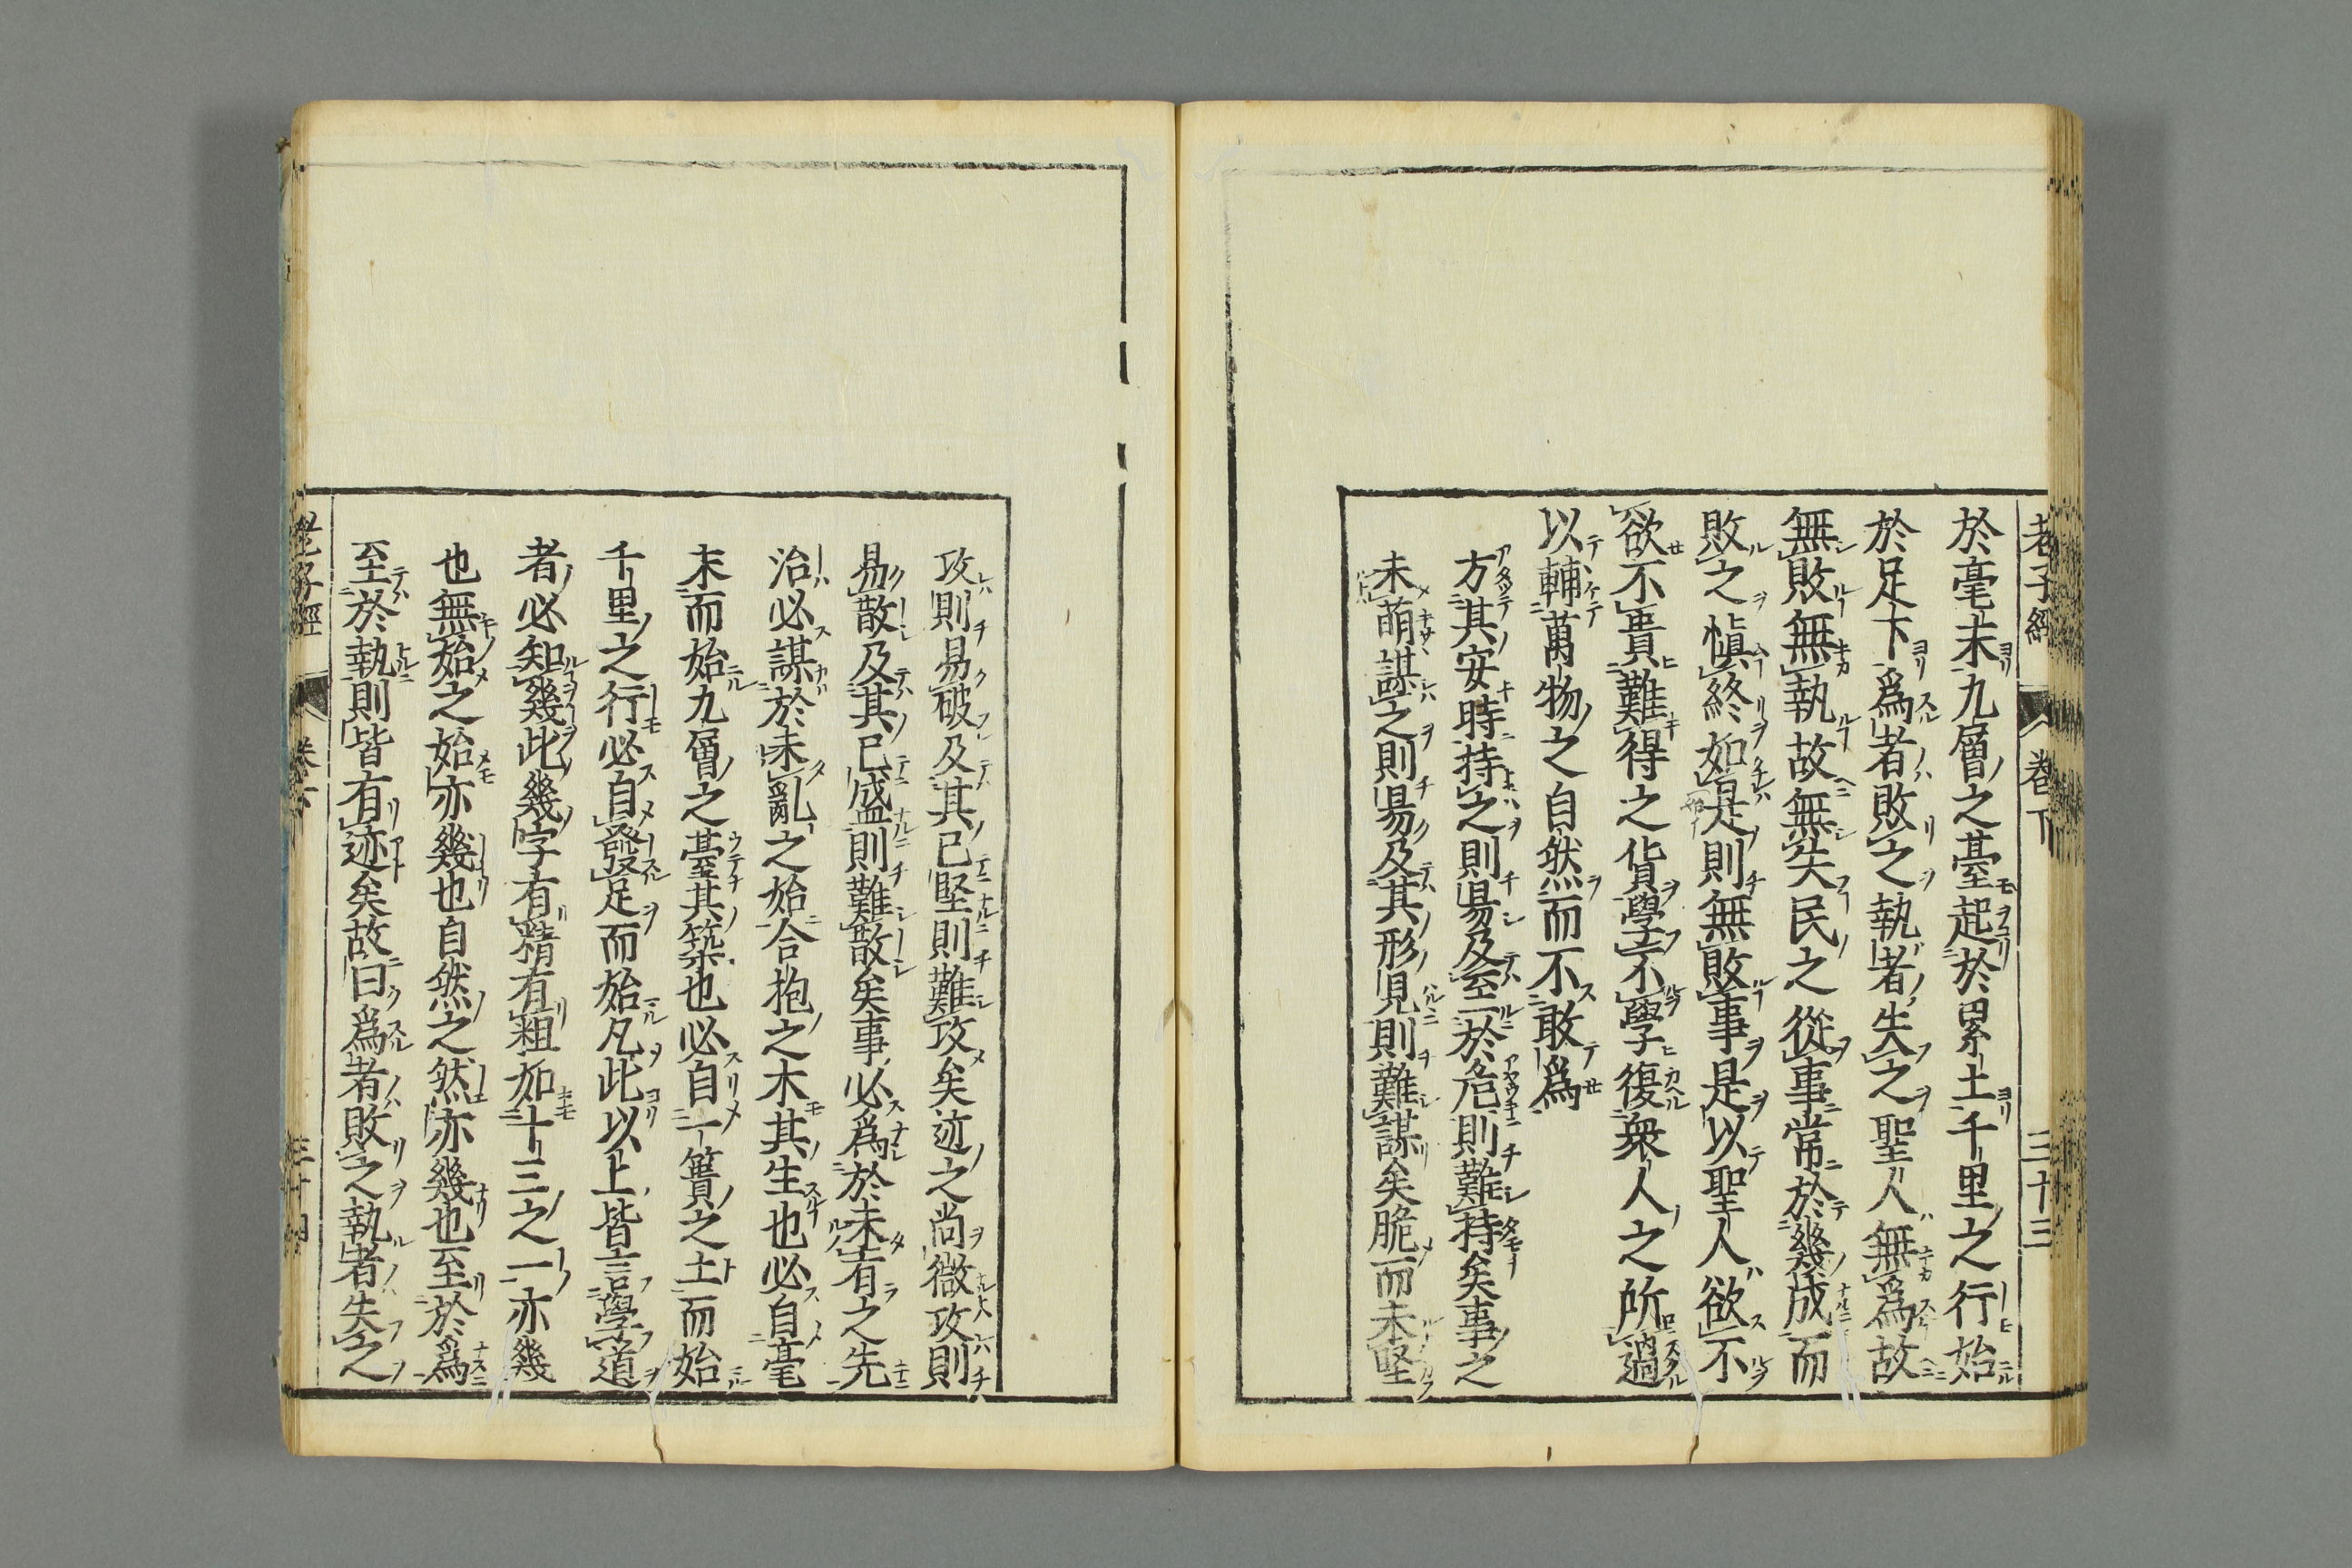 老子經 卷下 三十三
於毫末九層之臺起於累土千里之行始
於足下爲者敗之執者失之聖人無爲故
無敗無執故無失民之從事常於幾成而
敗之愼終如是則無敗事是以聖人欲不
欲不貴難得之貨學不學復衆人之所過
以輔萬物之自然而不敢爲
方其安時持之則易及至於危則難持矣事之
未萌謀之則易及其形見則難謀矣脆而未堅
攻則易破及其已堅則難攻矣迹之尚微攻則
易散及其已盛則難散矣事必爲於未有之先
治必謀於未亂之始合抱之木其生也必自毫
末而始九層之臺其築也必自一簣之土而始
千里之行必自發足而始凡此以上皆言學道
者必知幾此幾字有精有粗如十三之一亦幾
也無始之始亦幾也自然之然亦幾也至於爲
至於執則皆有迹矣故曰爲者敗之執者失之
老子經 卷下 三十四